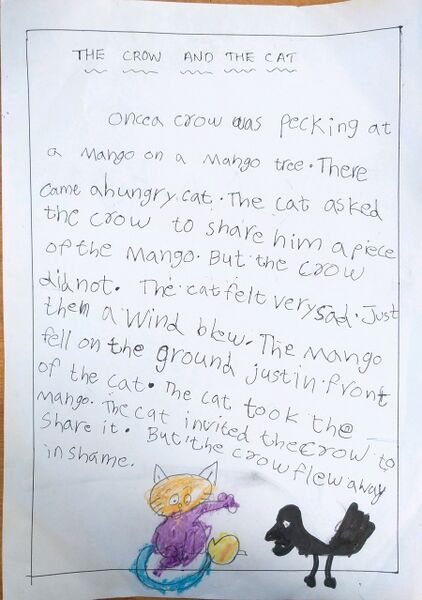 THE CROW AND THE CAT
Oncea crow was pecking at
a Mango on a Mango tree. There
came ahungry cat. The cat asked
the crow to share him apiece
of the Mango. But the crow
did not. The cat felt very sad. Just
then a Wind blew. The Mango
fell on the ground justin front
of the cat. The cat took the
Mango. The cat invited thecrow to
Share it. But the crow flew away
in shame.